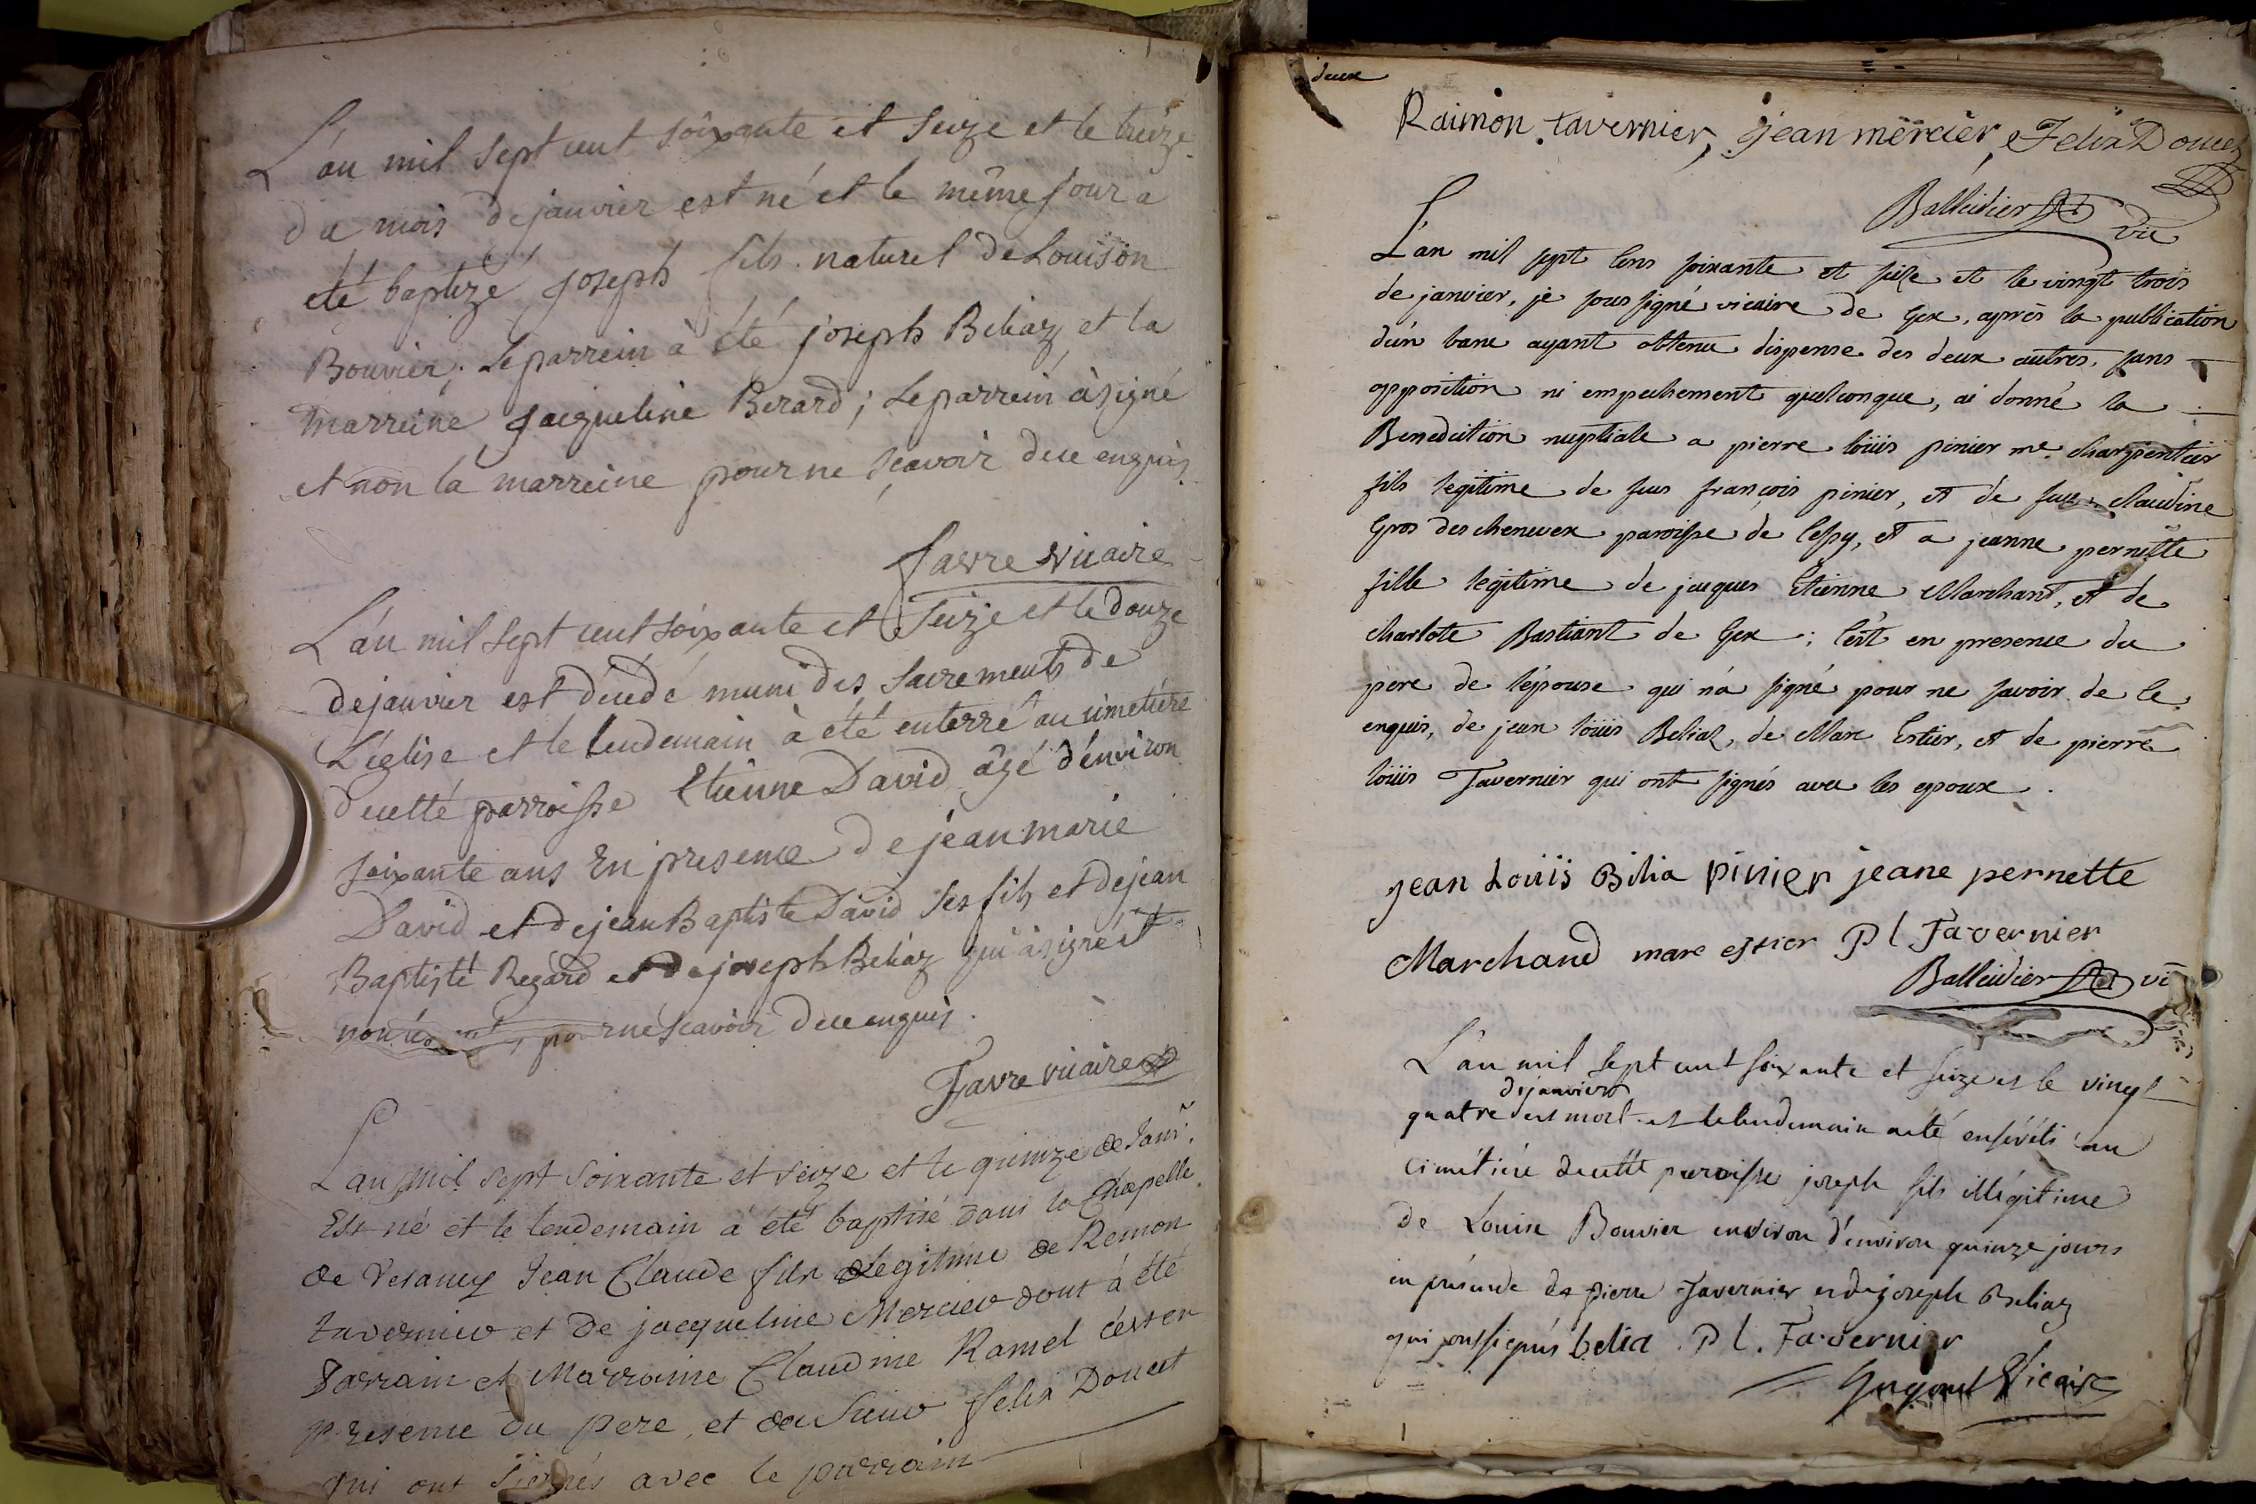 L'an mil sept cent soixante et seize et le treize
du mois de janvier est né et le même jour a
eté baptizé joseph fils naturel de Louison
Bouvier; Le parrein à été joseph Beliaz et la
marreine jacqueline Berard; Le parrein à signé
et non la marreine pour ne scavoir de ce enquis.
favre vicaire
L'an mil sept cent soixante et seize et le douze
de janvier est décédé muni des sacrements de
L'église et le lendemain à été enterré au cimetiére
de cetté parroisse Etienne David âgé d'environ
soixante ans En presence de jean marie
David et de jean Baptiste David ses fils et de jean
Baptisté Regard et de joseph Beliaz qui à signé et
non les pour ne scavoir de ce enquis.
Favre vicaire
L'an mil sept soixante et seize et le quinze de Janr.
Est né et le lendemain a été baptisé dans la Chapelle
de Vesancy Jean Claude fils Légitime de Remon
tavernier et de jacqueline Mercier dont à été
Parrain et Marraine Claudine Ramel c'est en
presence du pere, et du Sieur felix Doucet
qui ont signés avec le parrain
deux
Raimon tavernier, jean mercier, Felix Doucet
Balleidier vic
L'an mil sept cens soixante et seize et le vingt trois
de janvier, je sous signé vicaire de Gex, après la publication
d'un banc ayant obtenu dispense des deux autres, sans
opposition ni empechement quelconque, ai donné la
Benediction nuptiale a pierre loüis pinier me. charpentier
fils legitime de feus françois pinier, et de claudine
Gros des chenevex paroisse de Cessy, et a jeanne pernette
fille legitime de jacques Etienne Marchant, et de
charlote Bastiant de Gex; c'est en presence du
père de l'épouse qui n'a signé pour ne savoir de ce
enquis, de jean loüis Beliaz, de Marc Estier, et de pierre
loüis Tavernier qui ont signés avec les epoux.
jean Louïs Bilia pinier jeane pernette
Marchand marc estier P l Tavernier
Balleidier vi
L'an mil sept cent soixante et seize et le vingt
de janvier
quatre est mort et le lendemain a été enséveli au
cimétiere de cette paroisse joseph fils illégitime
de Louise Bouvier environ d'environ quinze jours
en présence de pierre Tavernier et de joseph Beliaz
qui sous signés belia P l. Tavernier
Vicaire